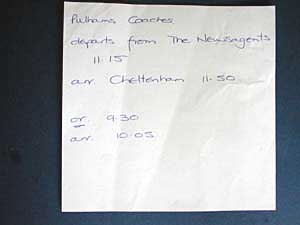 Pulhams Coaches
departs from The Newsagents
11.15
arr. Cheltenham 11.50
or. 9.30
arr. 10.05